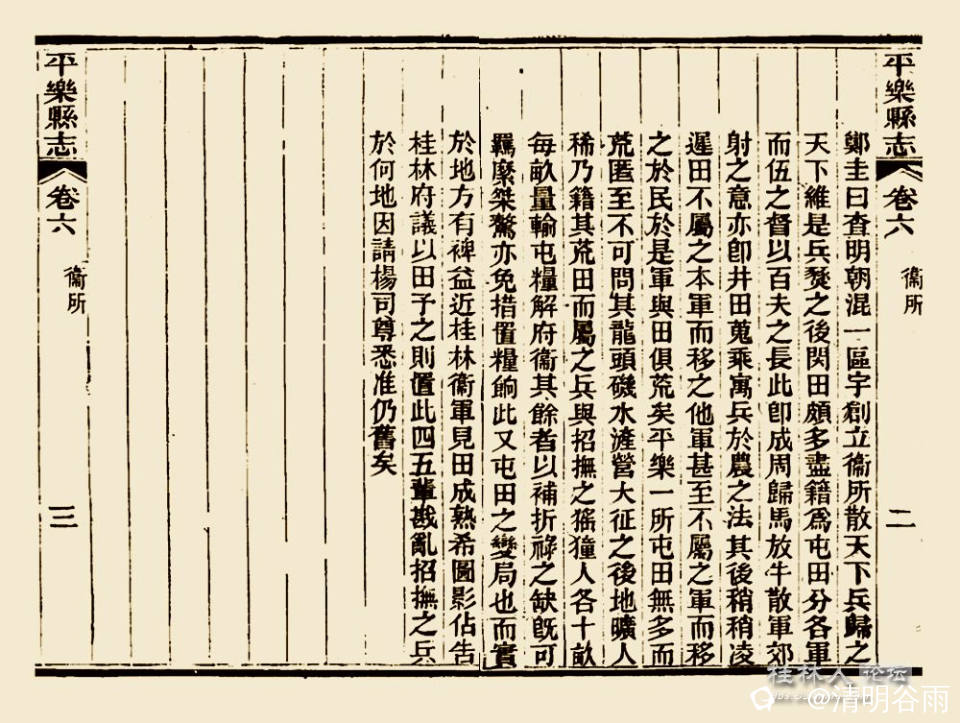 平樂縣志
卷六
衞所
二
鄭圭曰查明朝混一區宇創立衞所散天下兵歸之
天下維是兵燹之後閃田頗多盡籍爲屯田分各軍
而伍之督以百夫之長此卽成周歸馬放牛散軍郊
射之意亦卽井田蒐乘寓兵於農之法其後稍稍凌
遲田不屬之本軍而移之他軍甚至不屬之軍而移
之於民於是軍與田俱荒矣平樂一所屯田無多而
荒匿至不可問其龍頭磯水滻營大征之後地曠人
稀乃籍其荒田而屬之兵與招撫之猺獞人各十畝
每畝量輸屯糧解府衞其餘者以補折祿之缺旣可
羈縻桀驁亦免措置糧餉此又屯田之變局也而實
於地方有裨益近桂林衞軍見田成熟希圖影佔告
桂林府議以田子之則置此四五輩戡亂招撫之兵
於何地因請楊司尊悉准仍舊矣
平樂縣志
卷六
衞所
三
桂林人论坛
@清明谷雨